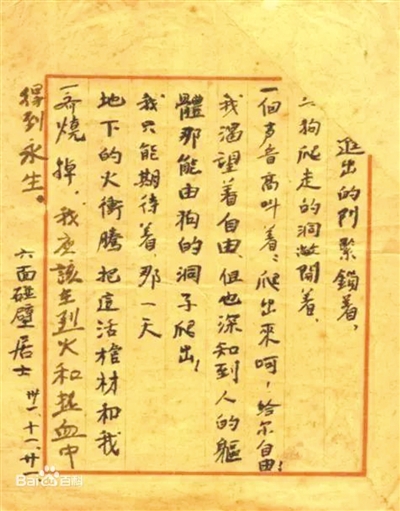 出的门緊鎖着,
狗爬走的洞敞開着、
一個声音高叫着:爬出來呵,給尔自由!
我渴望着自由、但也深知到人的軀
體那能由狗的洞子爬出!
我只能期待着、那一天
地下的火衝騰把這活棺材和我
一齊燒掉,我应該在烈火和热血中
得到永生。
六面碰壁居士
卅一、十一、廿一
Bai百科